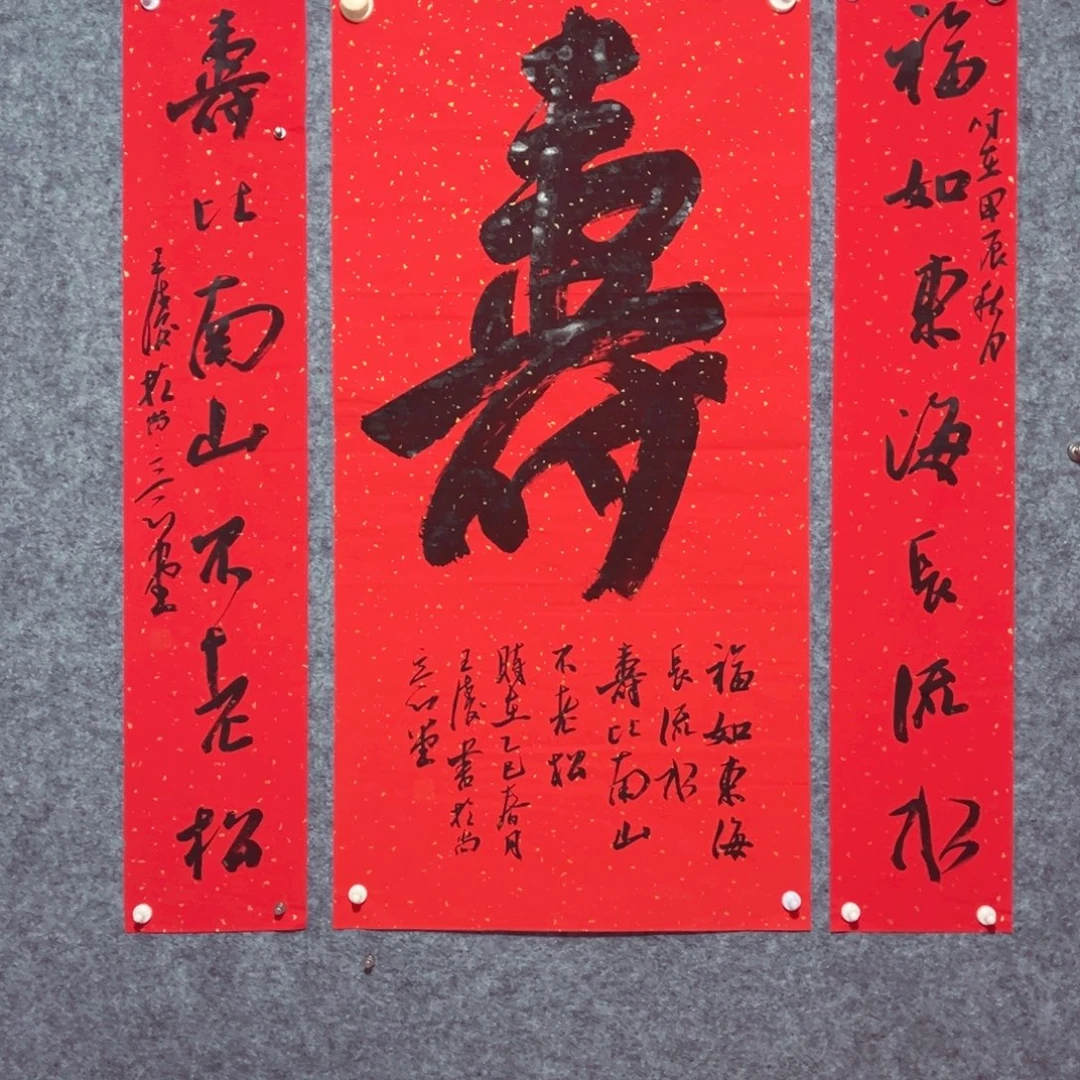 福如東海長流水
时在甲辰秋月
壽
福如東海
長流水
壽比南山
不老松
時在乙巳春月
王凌書於尚
三心堂
壽比南山不老松
王凌於尚三心堂